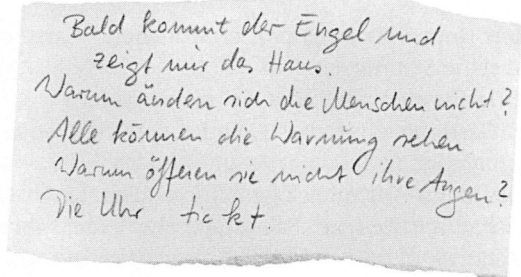 Bald kommt der Engel und
zeigt mir das Haus.
Warum änden sich die Menschen nicht?
Alle können die Warnung sehen
Warum öffenen sie nicht ihre Augen?
Die Uhr tickt.